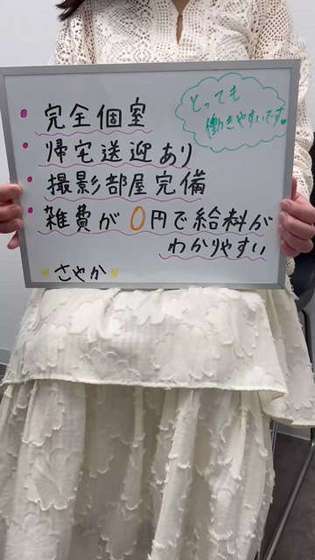 とっても
働きやすいです。
完全個室
帰宅送迎あり
撮影部屋完備
雑費が0円で給料が
わかりやすい
さやか